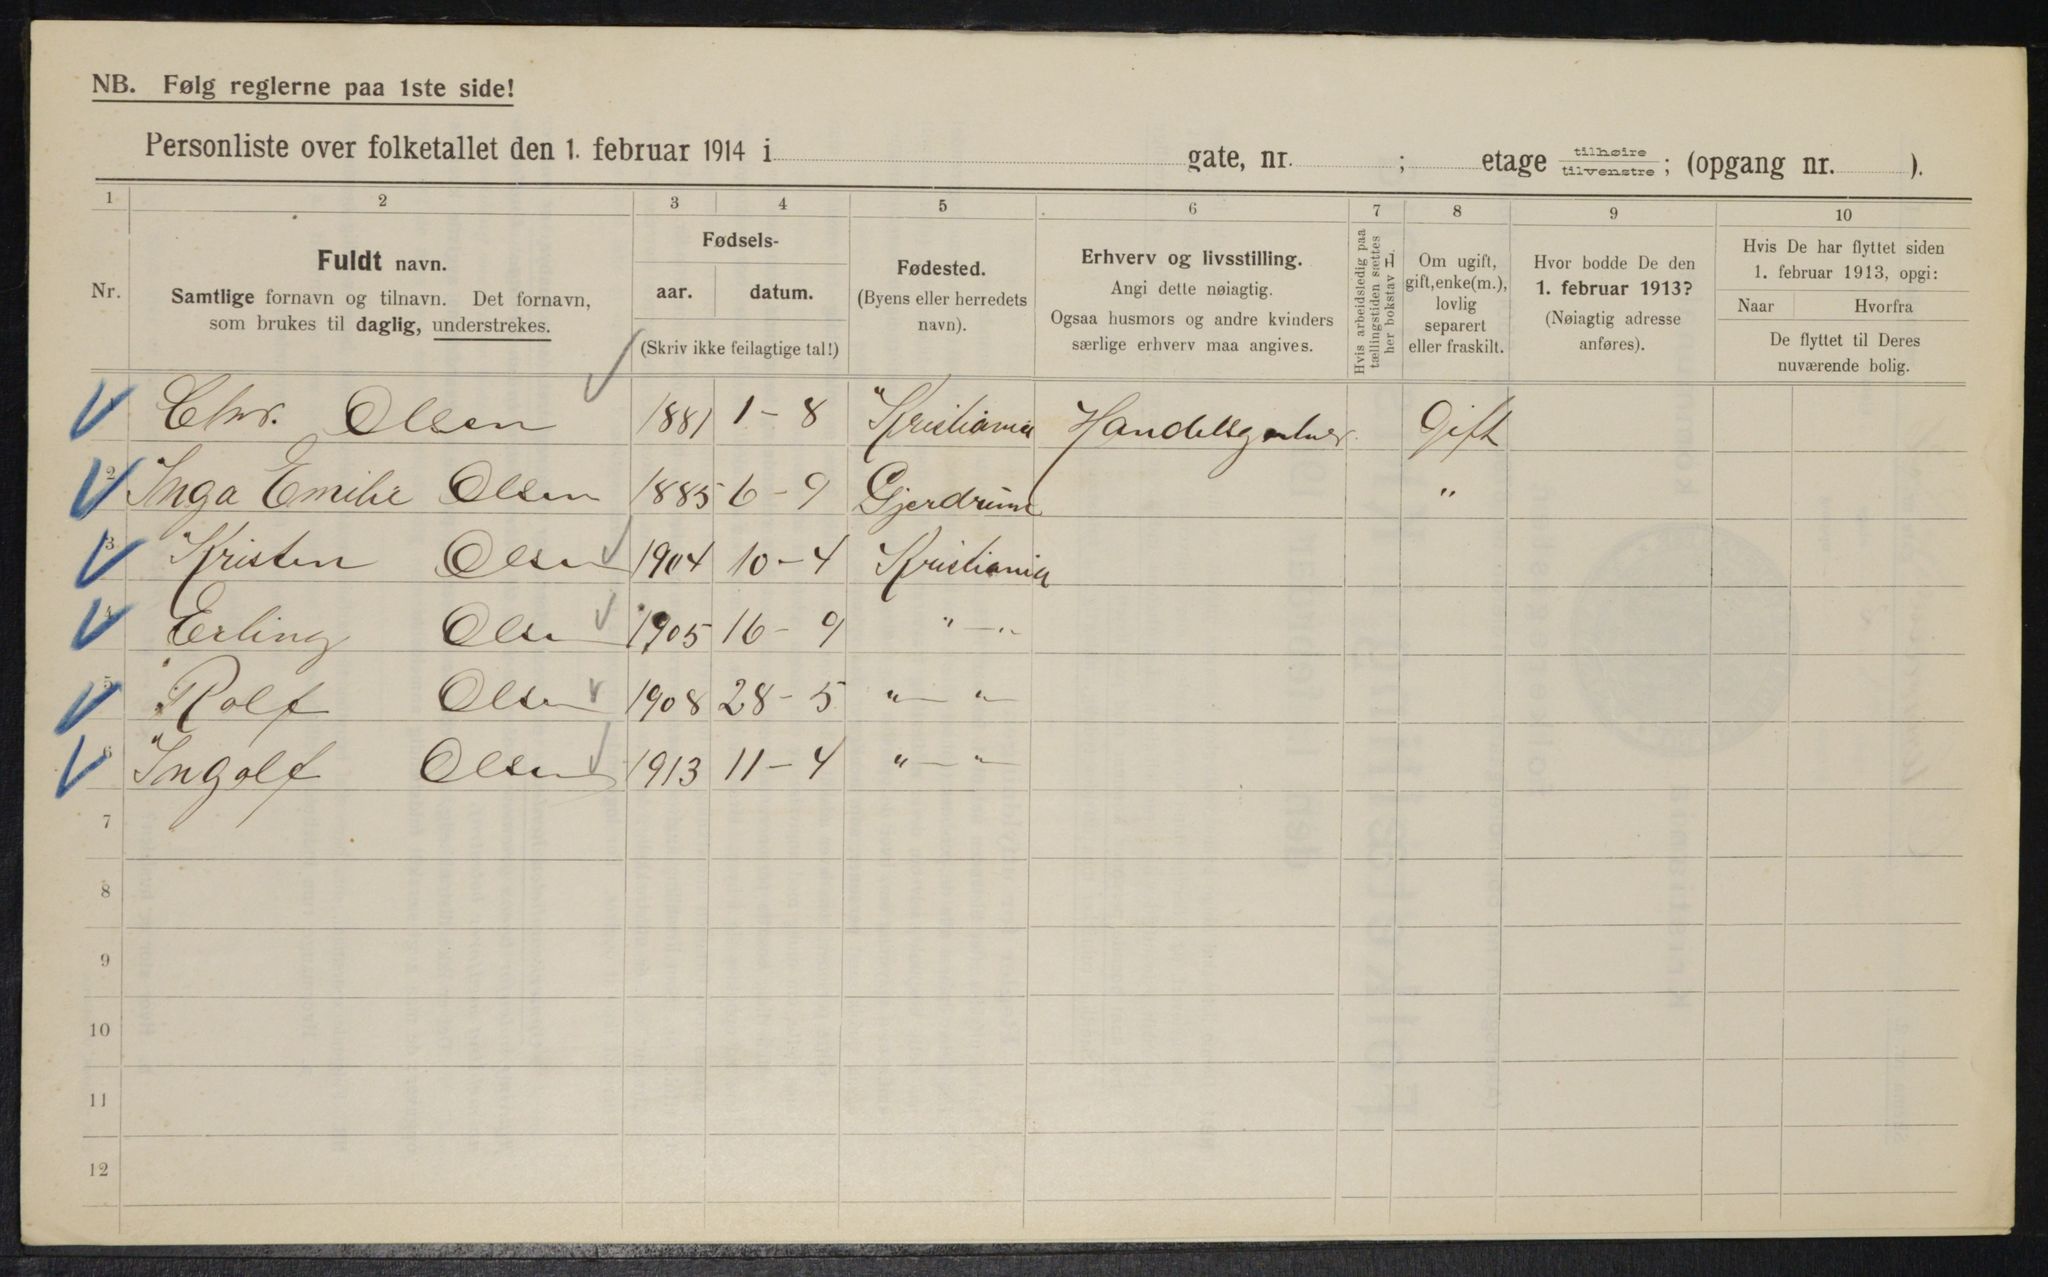 NB. Følg reglerne paa 1ste side!
Personliste over folketallet den 1. februar 1914 i gate, nr. ; etage tilhøire/tilvenstre; (opgang nr. ).
1 2 3 4 5 6 7 8 9 10
Nr.
Fuldt navn.
Samtlige fornavn og tilnavn. Det fornavn,
som brukes til daglig, understrekes.
Fødsels-
aar. datum.
(Skriv ikke feilagtige tal!)
Fødested.
(Byens eller herredets
navn).
Erhverv og livsstilling.
Angi dette nøiagtig.
Ogsaa husmors og andre kvinders
særlige erhverv maa angives.
Hvis arbeidsledig paa
tællingstiden sættes
her bokstav L.
Om ugift,
gift, enke(m.),
lovlig
separert
eller fraskilt.
Hvor bodde De den
1. februar 1913?
(Nøiagtig adresse
anføres).
Hvis De har flyttet siden
1. februar 1913, opgi:
Naar Hvorfra
De flyttet til Deres
nuværende bolig.
Chr. Olsen 1881 1-8 Kristiania Handelsgartner Gift
2 Inga Emilie Olsen 1885 6-9 Gjerdrum "
3 Kristen Olsen 1904 10-4 Kristiania
4 Erling Olsen 1905 16-9 "—"
5 Rolf Olsen 1908 28-5 "—"
6 Ingolf Olsen 1913 11-4 "—"
7
8
9
10
11
12